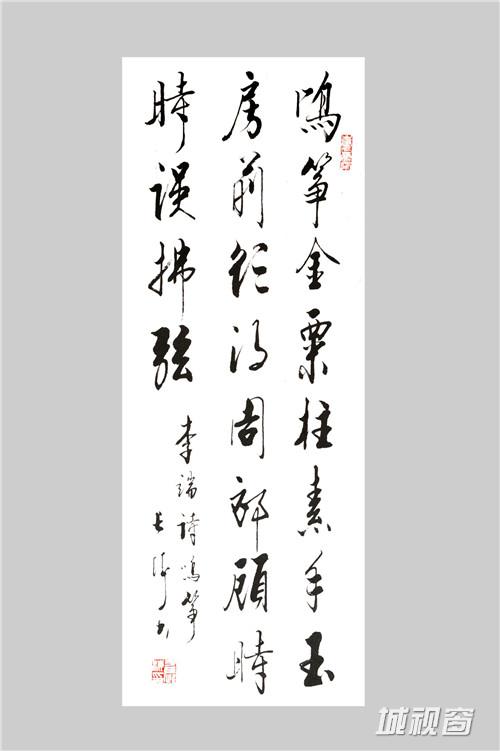 鳴筝金粟柱素手玉
房前欲得周郎顧時
時誤拂弦
李端詩鳴筝
城视窗